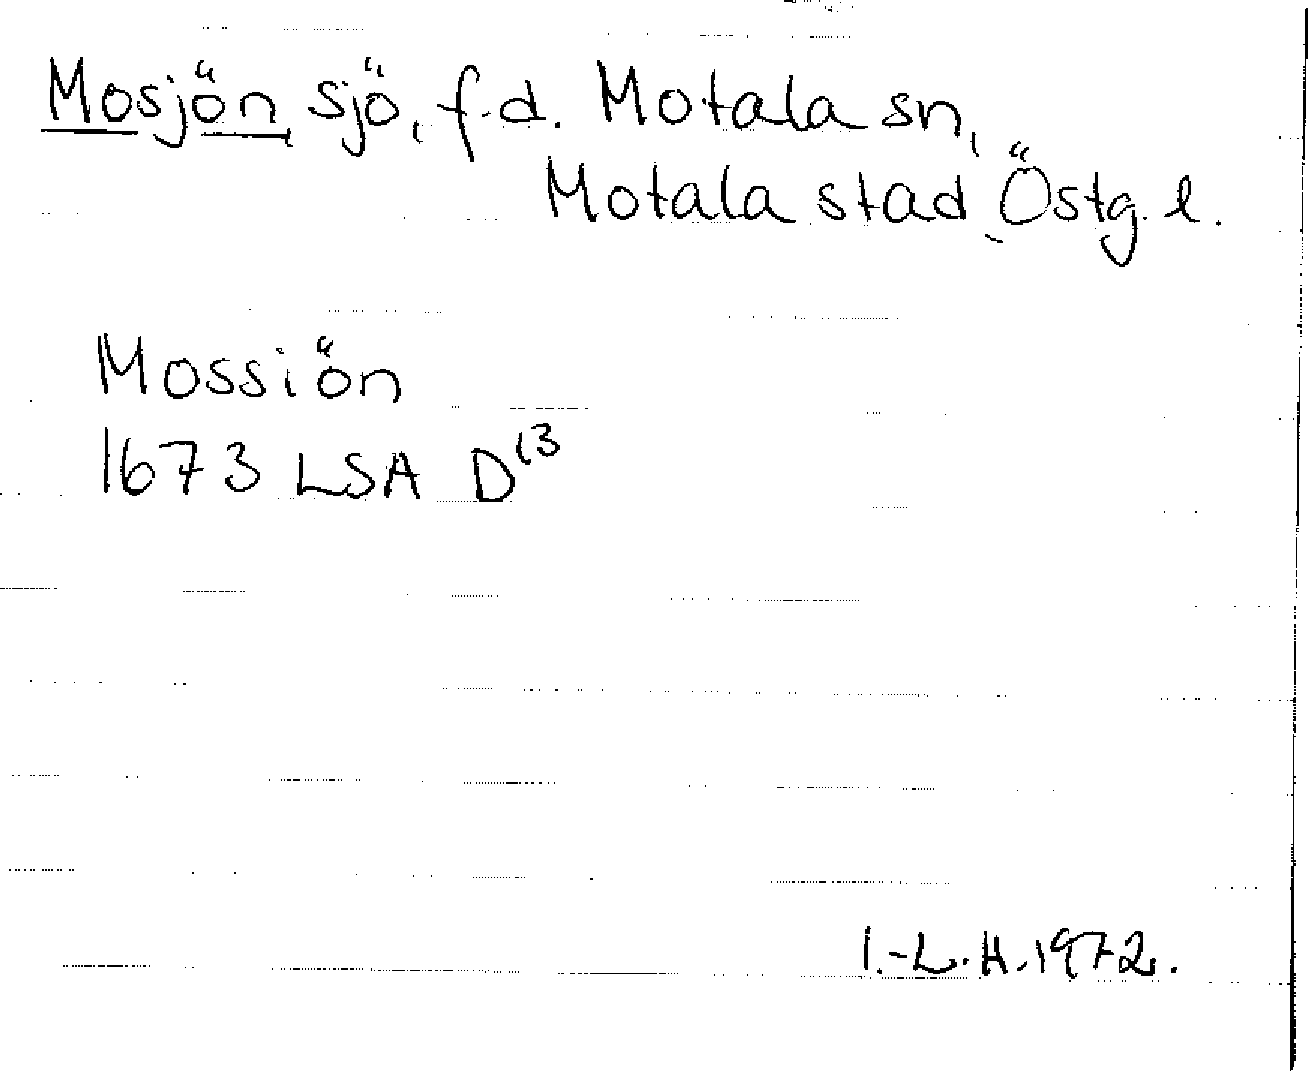 Mosjön sjö, f.d. Motala sn,
Motala stad, Östg. l.
Mossiön
1673 LSA D¹³
I.-L.H. 1972.